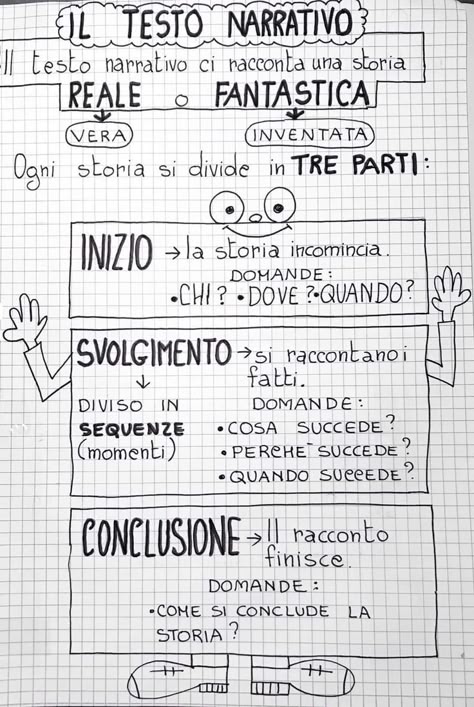 IL TESTO NARRATIVO
Il testo narrativo ci racconta una storia
REALE o FANTASTICA
VERA INVENTATA
Ogni storia si divide in TRE PARTI:
INIZIO → la storia incomincia.
DOMANDE:
•CHI? •DOVE? •QUANDO?
SVOLGIMENTO → si raccontano i
fatti.
DIVISO IN
SEQUENZE
(momenti)
DOMANDE:
•COSA SUCCEDE?
•PERCHE' SUCCEDE?
•QUANDO SUCCEDE?
CONCLUSIONE → Il racconto
finisce.
DOMANDE:
•COME SI CONCLUDE LA
STORIA?